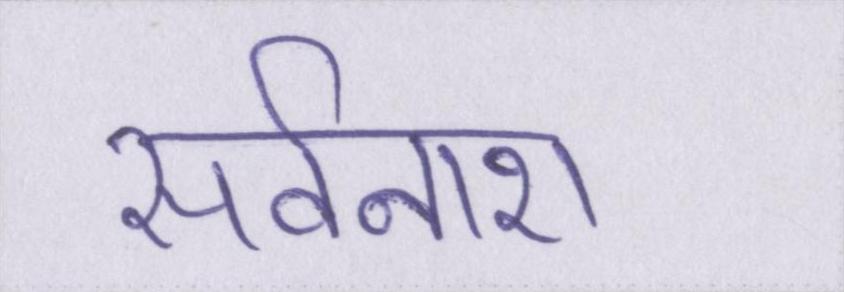 सर्वनाश